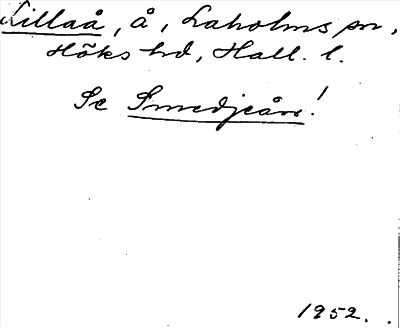 Lillaå, å, Laholms sn,
Höks hd, Hall. l.
Se Smedjeån!
1952.